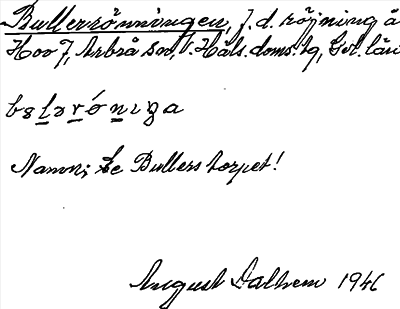 Bullerrönningen, f. d. röjning å
Hov 7, Arbrå sn, v. Häls. doms. tg, Gvl. län
Namn; Se Bullers torpet!
August Dalhem 1946